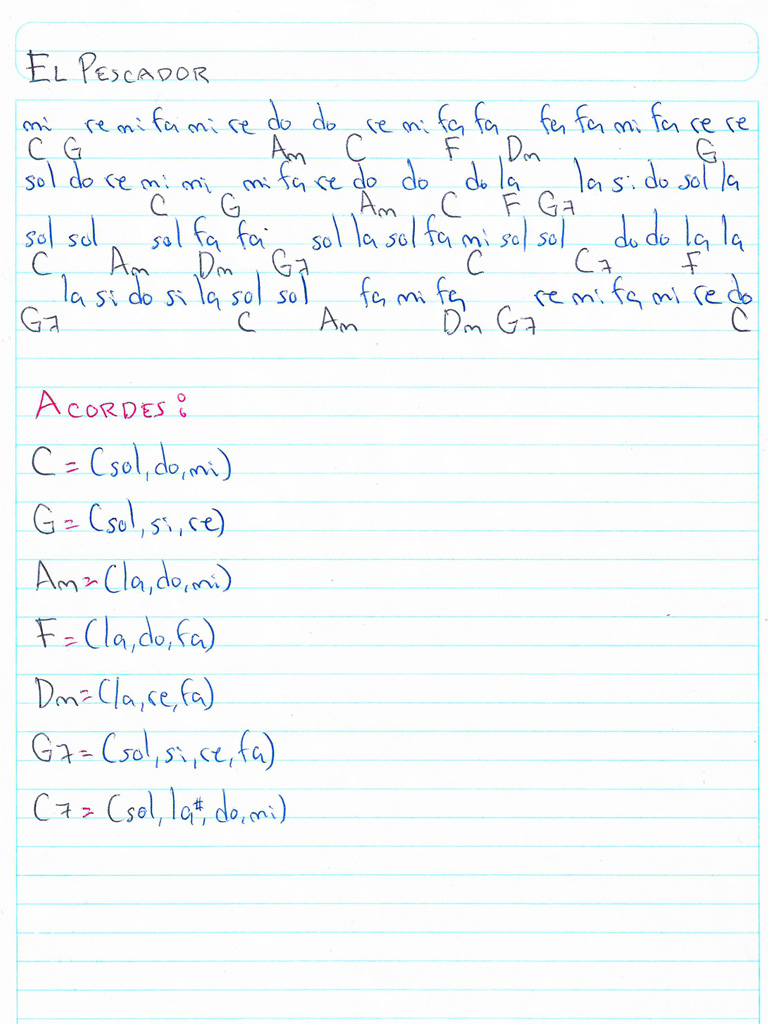 EL PESCADOR
mi re mi fa mi re do do re mi fa fa fa fa mi fa re re
C G Am C F Dm G
sol do re mi mi mi fa re do do do la la si do sol la
C G Am C F G7
sol sol sol fa fa sol la sol fa mi sol sol do do la la
C Am Dm G7 C C7 F
la si do si la sol sol fa mi fa re mi fa mi re do
G7 C Am Dm G7 C
ACORDES:
C = (sol, do, mi)
G = (sol, si, re)
Am = (la, do, mi)
F = (la, do, fa)
Dm = (la, re, fa)
G7 = (sol, si, re, fa)
C7 = (sol, la#, do, mi)